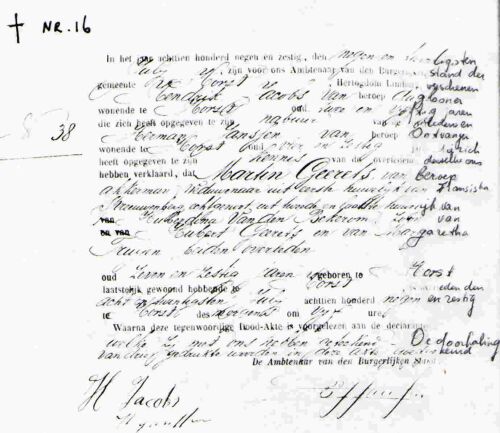 † NR. 16
In het jaar achttien honderd negen en zestig, den negen en twintigsten
July zijn voor ons Ambtenaar van den Burgerlijken stand der
gemeente Horst, Hertogdom Limburg, verschenen
Hendrik Jacobs van beroep daglooner
wonende te Horst oud jaren
die zich heeft opgegeven te zijn nabuur van
38
Janssen van beroep Ontvanger
wonende te Horst oud vier en zestig
heeft opgegeven te zijn kennis van den overleden, dewelke ons
hebben verklaard, dat Martin Geerets van Beroep
akkerman, weduwnaar uit eerste huwelijk van Fransiska
Vreuwenberg achtereerst, uit tweede en laatste huwelijk van
Huberdina Van den Bekerom, Zoon van
Hubert Geerets en van Margaretha
beiden overleden
oud Zeven en Zestig Jaren geboren te Horst
laatstelijk gewoond hebbende te Horst, overleden den
acht en twintigsten July achttien honderd negen en zestig
te Horst des morgends om vijf ure
Waarna deze tegenwoordige Dood-Akte is voorgelezen aan de declaranten
welke zij met ons hebben geteekend. De doorhaling
van drie gedrukte woorden in deze akte goedgekeurd
De Ambtenaar van den Burgerlijken Stand
H Jacobs